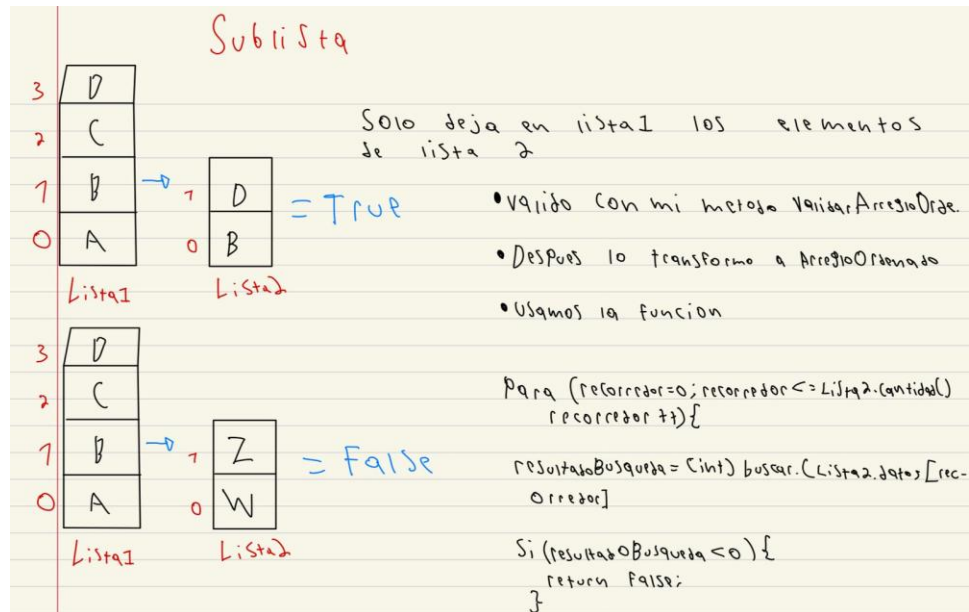 Sublista
3 D
2 C
1 B
0 A
Lista1
1 D
0 B
Lista2
= True
3 D
2 C
1 B
0 A
Lista1
1 Z
0 W
Lista2
= False
Solo deja en lista1 los elementos
de lista 2
• Valido con mi metodo validarArregloOrde.
• Despues lo transformo a ArregloOrdenado
• Usamos la funcion
Para (recorredor=0; recorredor<=Lista2.cantidad()
recorredor ++){
resultadoBusqueda = (int) buscar.(Lista2.datos[rec-
orredor]
Si (resultadoBusqueda<0){
return False;
}